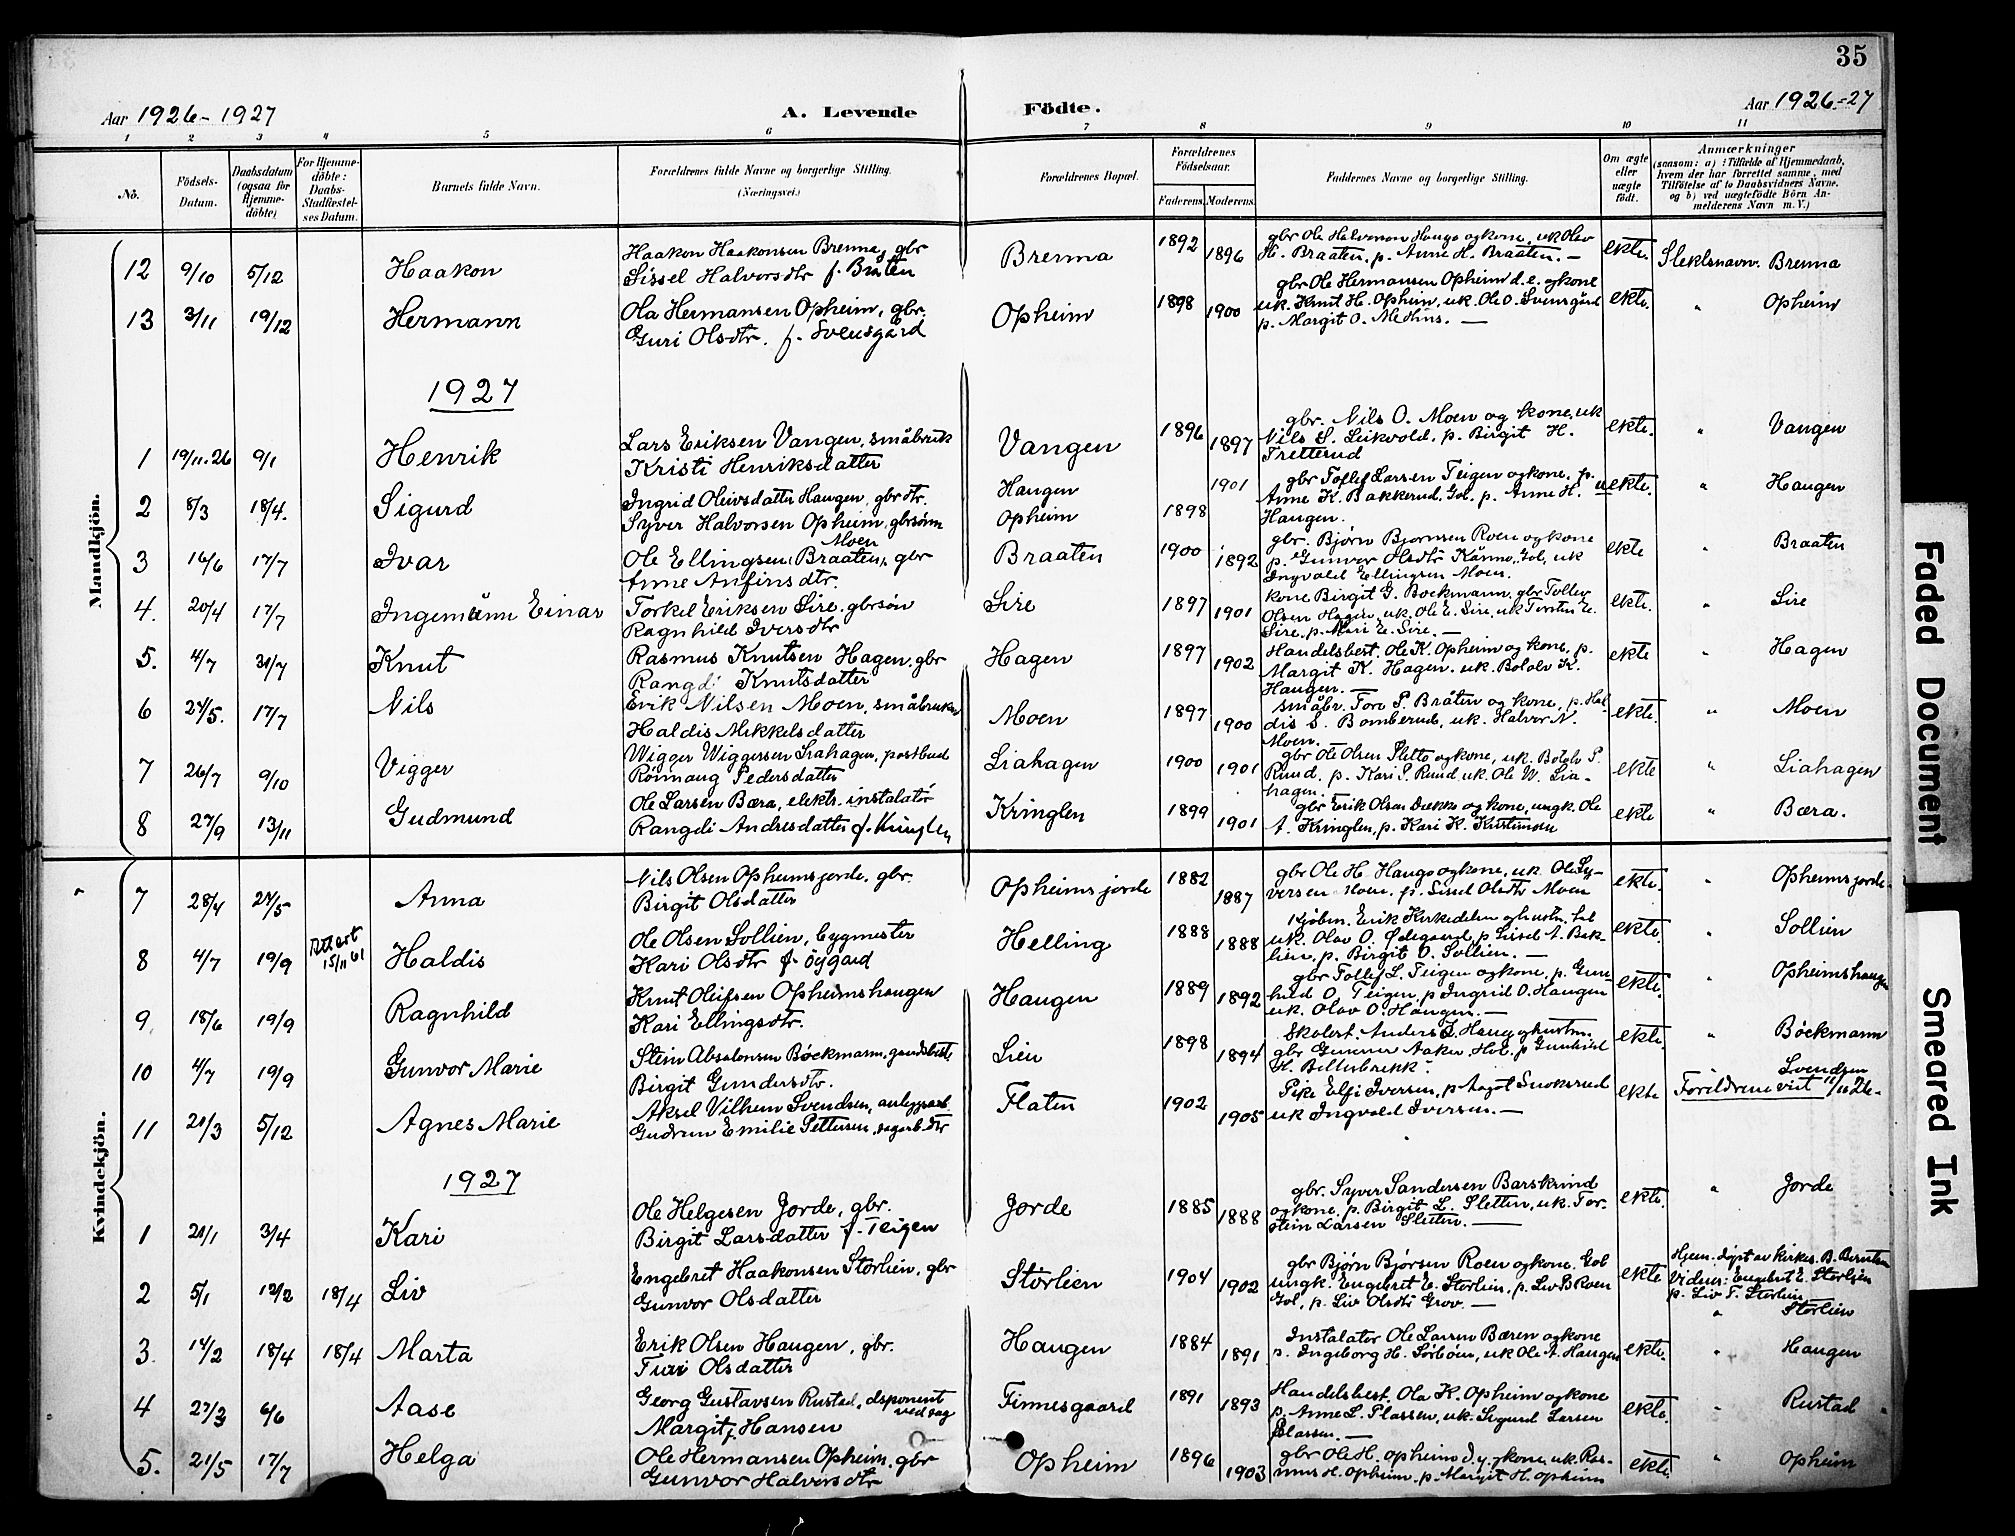 35
Aar 1926-1927 A. Levende Födte. Aar 1926-27
1 2 3 4 5 6 7 8 9 10 11
No. Födsels-Datum. Daabsdatum (ogsaa for Hjemme-döbte) For Hjemme-döbte: Daabs-Stadfæstel-ses Datum. Barnets fulde Navn. Forældrenes fulde Navne og borgerlige Stilling. (Næringsvei.) Forældrenes Bopæl. Forældrenes Födselsaar. Faderens Moderens Faddernes Navne og borgerlige Stilling. Om ægte eller uægte födt. Anmærkninger (saasom: a) i Tilfælde af Hjemmedaab, hvem der har forrettet samme, med Tilföielse af to Daabsvidners Navne, og b) ved uægtefödte Börn An-melderens Navn m. V.)
Mandkjön.
12 9/10 5/12 Haakon Haakon Haakonsen Brenna, gbr Brenna 1892 1896 gbr Ole Halvorson Haugo og kone, uk Olav ekte. Slektsnavn. Brenna
Sissel Halvorsdtr f. Bråten H. Braaten, p. Anne H. Braaten. —
13 3/11 19/12 Hermann Ola Hermansen Opheim, gbr. Opheim 1898 1900 gbr Ole Hermansen Opheim d.e. og kone ekte. " Opheim
Guri Olsdtr. f. Svensgård uk. Knut H. Opheim, uk. Ole O. Svensgård
p. Margit O. Medhus. —
1927
1 19/11.26 9/1 Henrik Lars Eriksen Vangen, småbruk Vangen 1896 1897 gbr. Nils O. Moen og kone, uk ekte. " Vangen
Kristi Henriksdatter Nils S. Leikvold, p. Birgit H.
Tretterud
2 8/3 18/4. Sigurd Ingrid Oleivsdatter Haugen, gbrdtr. Haugen 1901 gbr Tollef Larsen Teigen og kone, p. uekte. " Haugen
Syver Halvorsen Opheim, gbrsønn Opheim 1898 Anne K. Bakkerud, Gol, p. Anne H.
Haugen.
3 16/6 17/7 Ivar Ole Ellingsen (Braaten), Moen gbr Braaten 1900 1892 gbr. Bjørn Bjørnsen Roen og kone ekte " Braaten
Anne Anfinsdtr. p. Gunvor Olsdtr Gol, uk
Ingvald Ellingsen Moen.
4. 20/4 17/7 Ingemann Einar Torkel Eriksen Sire, gbrsøn Sire 1897 1901 kone Birgit G. Bockmann, gbr Tollev ekte. " Sire
Ragnhild Iversdtr Olsen Hagen, uk. Ole E. Sire, uk Torsten E.
Sire, p. Mari E. Sire. —
5. 4/7 31/7 Knut Rasmus Knutsen Hagen, gbr Hagen 1897 1902 Handelsbest. Ole K. Opheim og kone, p. ekte " Hagen
Rangdi Knutsdatter Margit K. Hagen, uk. Bololv K.
Haugen. —
6 24/5. 17/7 Nils Erik Nilsen Moen, småbruker Moen 1897 1900 småbr. Tore P. Bråten og kone, p. Hal- ekte. " Moen
Haldis Mikkelsdatter dis S. Bomberud, uk. Halvor N.
Moen.
7 26/7 9/10 Vigger Wigger Wiggersen Liahagen, postbud Liahagen 1900 1901 gbr Ole Olsen Sletto og kone, uk. Botolv P. ekte " Liahagen
Rønnaug Pedersdatter Ruud, p. Kari P. Ruud, uk. Ole W. Lia-
hagen.
8 27/9 13/11 Gudmund Ole Larsen Bæra, elektr. instalatør Kringlen 1899 1901 gbr Erik Olsen og kone, ungk. Ole ekte " Bæra.
Rangdi Andresdatter f. Kringlen A. Kringlen, p. Kari K. Kristiansen
Kvindekjön.
7 28/4 24/5 Anna Nils Olsen Opheimsjorde, gbr. Opheimsjorde 1882 1887 gbr Ole H. Haugo og kone, uk. Ole Sy- ekte. " Opheimsjorde.
Birgit Olsdatter versen Moen, p. Sissel Olsdtr Moen
8 4/7 19/9 Attest 15/11 61 Haldis Ole Olsen Sollien, bygmester Helling 1888 1888 kjøbm. Erik Kirkedelen og hustr. Gol ekte. " Sollien
Kari Olsdtr f. Øygard uk. Olav O. Ødegaard, p. Sissel A. Bak-
lien, p. Birgit O. Sollien. —
9. 18/6 19/9 Ragnhild Knut Oleifsen Opheimshaugen Haugen 1889 1892 gbr Tollef L. Teigen og kone, p. Gun- ekte. " Opheimshaugen
Kari Ellingsdtr. hild O. Teigen, p Ingrid O. Haugen
uk. Olav O. Haugen. —
10 4/7 19/9 Gunvor Marie Stein Absalonsen Bøckmann, gaardsbest. Lien 1898 1894 Skolest. Anders L. Haug og hustru. ekte. " Bøckmann
Birgit Gundersdtr. gbr Gunnar Aaker, Hol, p Gunhild
H. Bellerbrekk.
11 21/3 5/12 Agnes Marie Aksel Vilhelm Svendsen, anlegsarb. Flaten 1902 1905 Pike Elfi Iversen, p Aagot Snoksrud ekte " Svendsen
Gudrun Emilie Pettersen, sagarb.dtr uk Ingvald Iversen. — Foreldrene viet 11/10 26.
1927
1 21/1 3/4 Kari Ole Helgesen Jorde, gbr. Jorde 1885 1888 gbr. Syver Sandersen Barskrind ekte. " Jorde
Birgit Larsdatter f. Teigen og kone, p. Birgit L. Sletten, uk. Tor-
stein Larsen Sletten. —
2 5/1 12/2 18/4 Liv Engebret Haakonsen Størlien, gbr Størlien 1904 1902 gbr Bjørn Bjørnsen Roen og kone, Gol ekte Hjem.døpt av kirkes. B. Bersten
Gunvor Olsdatter ungk. Engebret E. Størlien, p. Liv B Roen Vidner: Engebret E. Størlien
Gol, p. Liv Olsdtr Grov. — p. Liv T. Størlien
" Størlien
3. 14/2 18/4 18/4 Marta Erik Olsen Haugen, gbr. Haugen 1884 1891 Instalatør Ole Larsen Bæren og kone ekte. " Haugen
Turi Olsdatter p. Ingeborg H. Sørbøen, uk Ole A. Haugen
4 27/3 6/6 Aase Georg Gustavsen Rustad, disponent ved sag Finnesgaard 1891 1893 Handelsbest. Ola K. Opheim og kone ekte. " Rustad
Margit f. Hansen p. Anne L. Plassen, uk. Sigurd Larsen
Plassen. —
5. 21/5 17/7 Helga Ole Hermansen Opheim, gbr Opheim 1896 1903 gbr Ole H. Opheim d.y. og kone, uk. Ras- ekte " Opheim
Gunvor Halvorsdtr mus H. Opheim, p. Margit H. Opheim
Faded Document
Smeared Ink